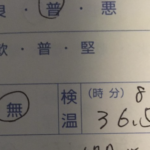 良・普・悪
軟・普・堅
無 検温 (時分) 8
36.5